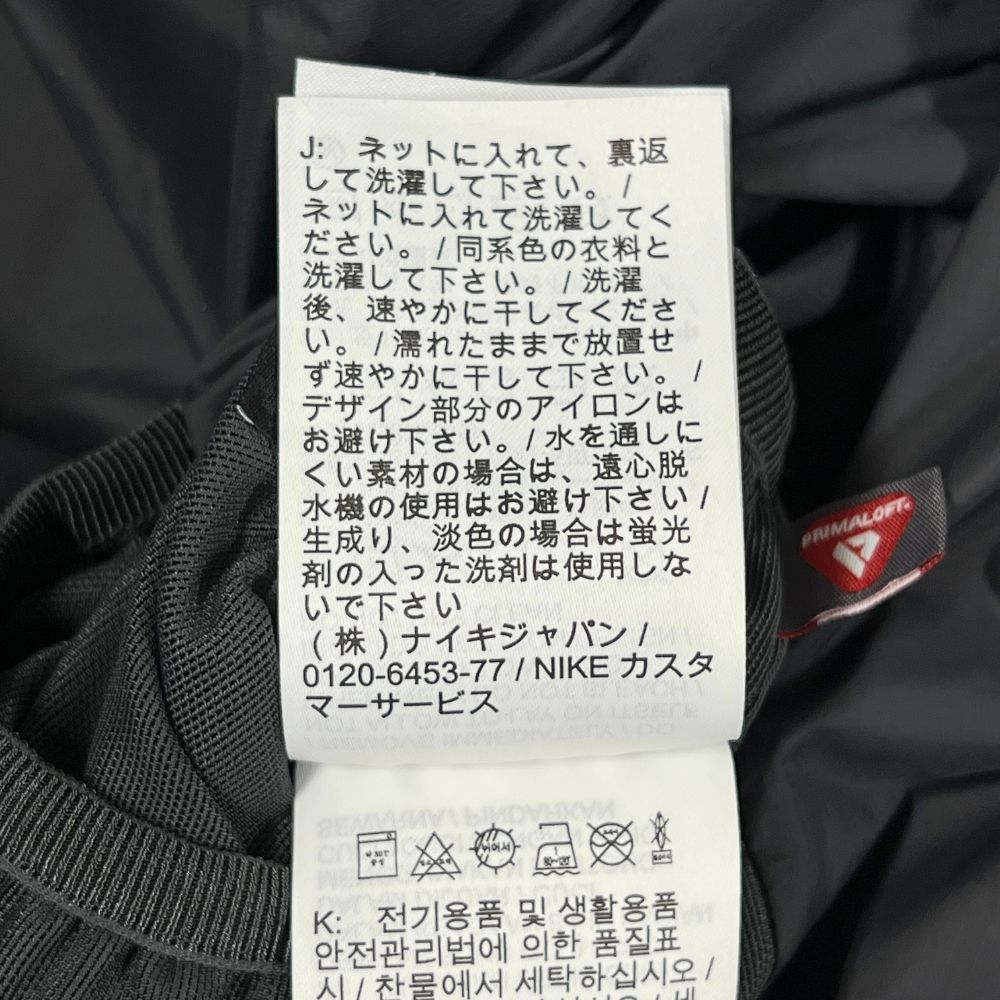 J: ネットに入れて、裏返
して洗濯して下さい。 /
ネットに入れて洗濯してく
ださい。 / 同系色の衣料と
洗濯して下さい。 / 洗濯
後、速やかに干してくださ
い。 / 濡れたままで放置せ
ず速やかに干して下さい。 /
デザイン部分のアイロンは
お避け下さい。 / 水を通しに
くい素材の場合は、遠心脱
水機の使用はお避け下さい /
生成り、淡色の場合は蛍光
剤の入った洗剤は使用しな
いで下さい
(株) ナイキジャパン /
0120-6453-77 / NIKE カスタ
マーサービス
PRIMALOFT
80~120
K: 전기용품 및 생활용품
안전관리법에 의한 품질표
시 / 찬물에서 세탁하십시오 /